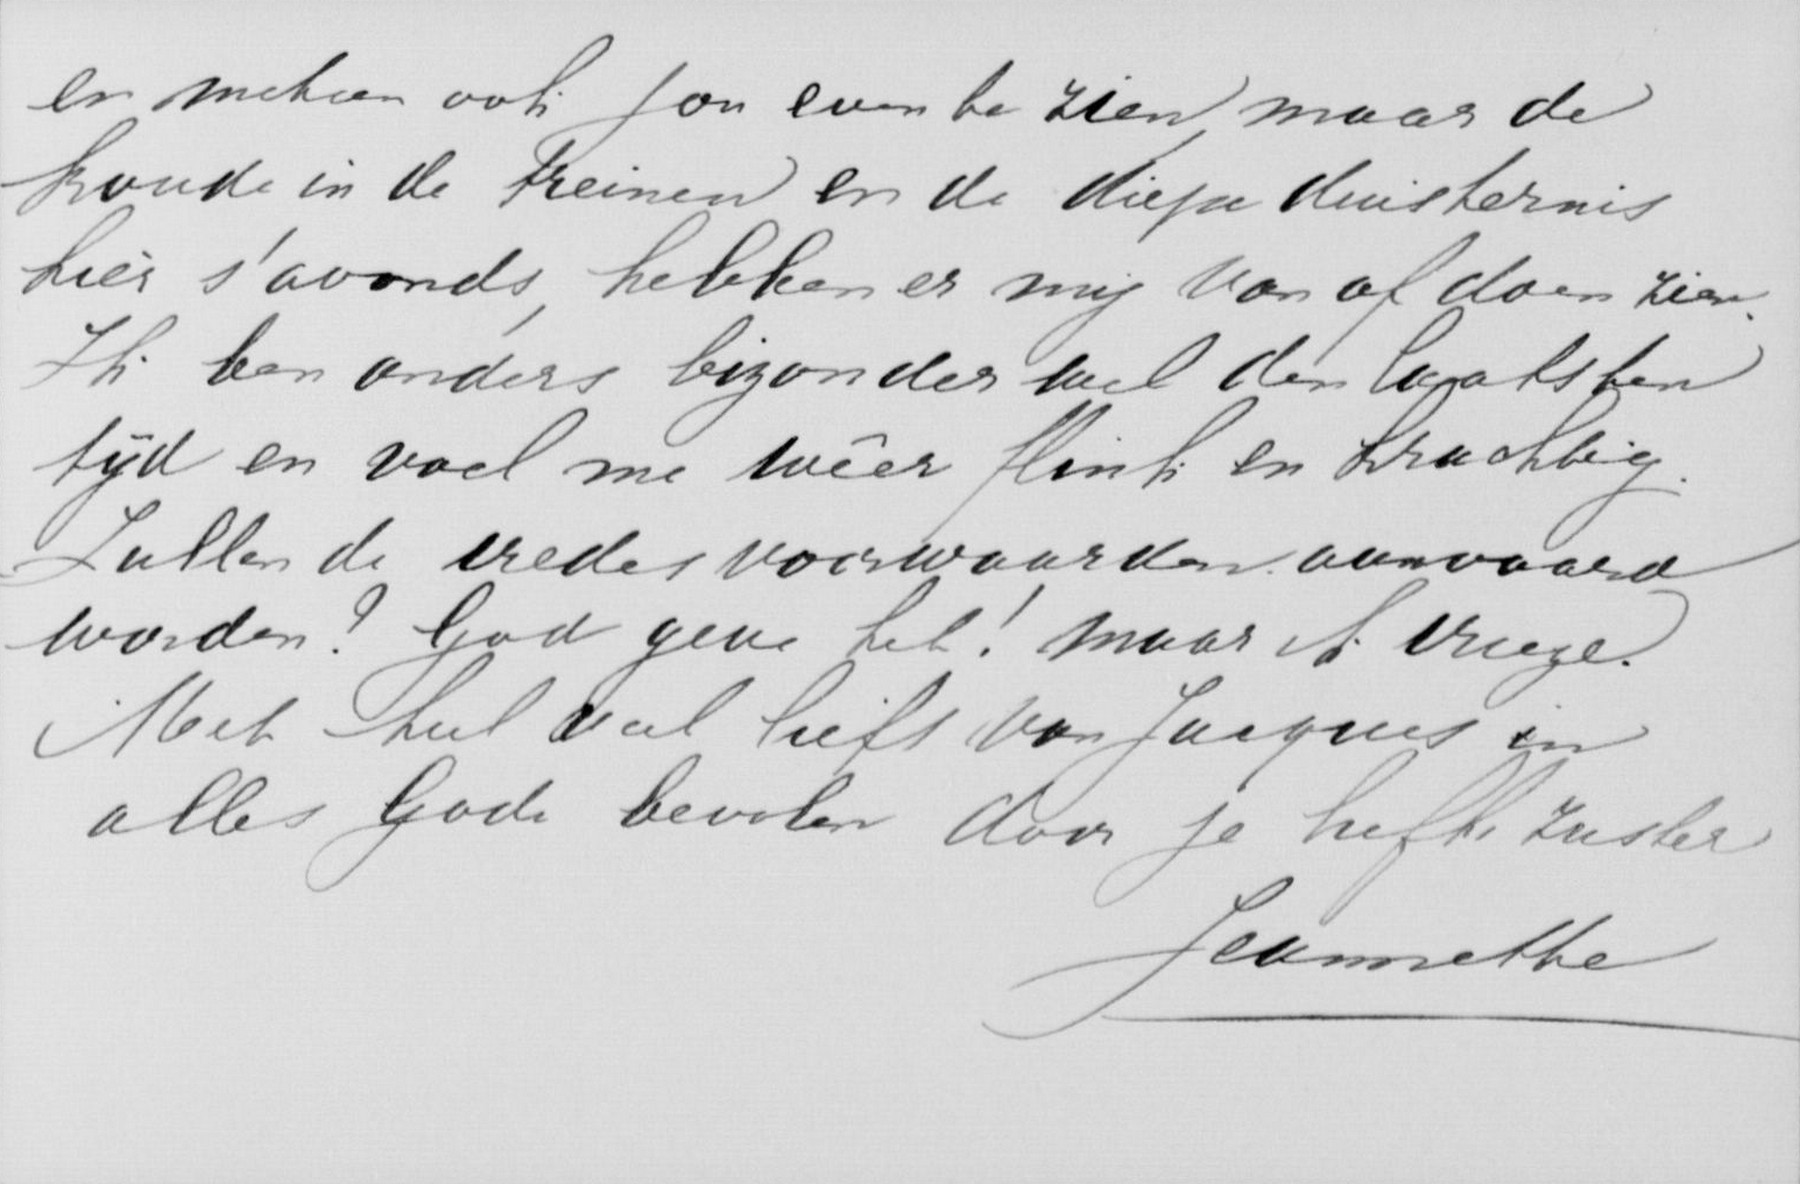 en meteen ook jou even te zien, maar de
koude in de treinen en de diepe duisternis
hier s'avonds, hebben er mij van af doen zien.
Ik ben anders bizonder wel den laatsten
tijd en voel me wêer flink en krachtig.
Zullen de vredesvoorwaarden aanvaard
worden? God geve het! maar ik vreeze.
Met heel veel liefs van Jacques in
alles Gode bevolen door je liefh. zuster
Jeannette